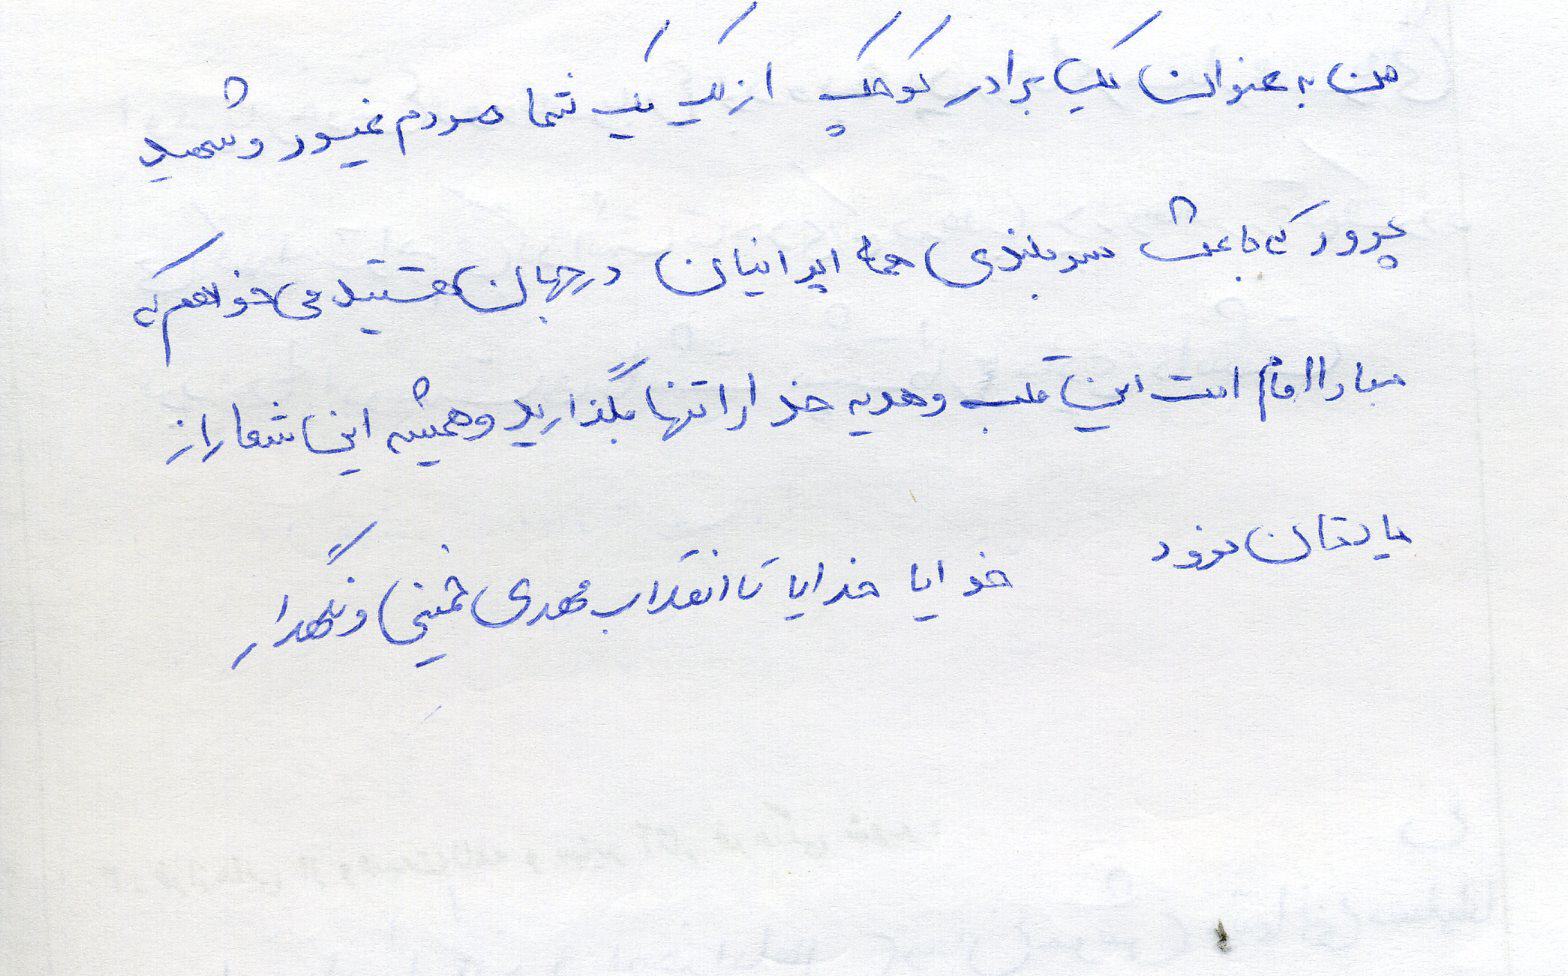 من به عنوان یک برادر کوچک از یک یک شما مردم غیور و شهید
پرور که باعث سربلندی همه ایرانیان در جهان هستید می خواهم که
مبادا امام امت این قلب و هدیه خدا را تنها بگذارید و همیشه این شعار از
یادتان نرود خدایا خدایا تا انقلاب مهدی خمینی و نگهدار